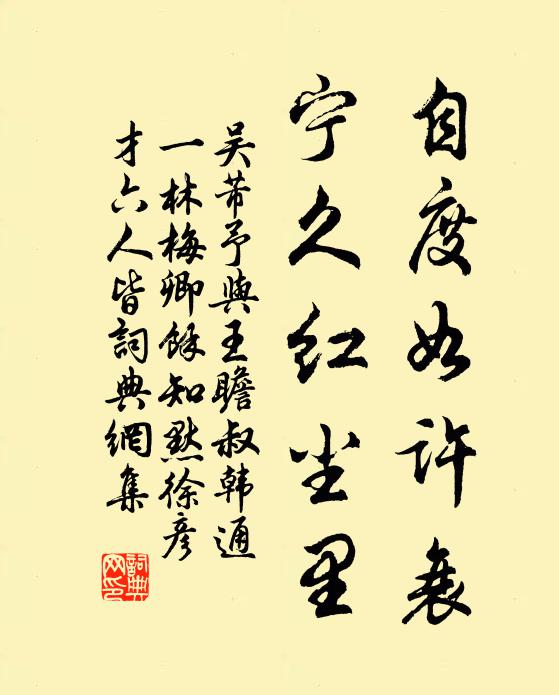 自度如许衰
宁久红尘里
吴芾予與王瞻叔韩通
一林梅卿餘知默徐彦
才六人皆詞典網集
詞典
网印